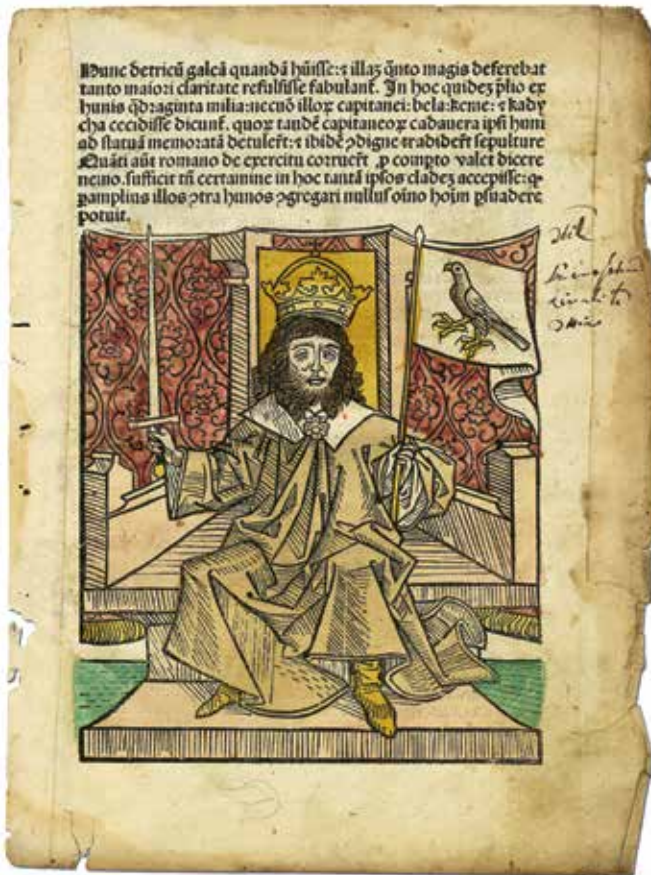 Hunc detricū galeā quandā hūisse: ⁊ illaȝ q̄nto magis deferebat
tanto maiori claritate refulsisse fabulant᷑. In hoc quideȝ p̄lio ex
hunis q̄draginta milia: necnō illoꝝ capitanei: bela: keme: ⁊ kady
cha cecidisse dicunt᷑. quoꝝ tandē capitaneoꝝ cadauera ipsi huni
ad statuā memoratā detuler̄t: ⁊ ibidē ↄdigne tradider̄t sepulture
Quāti aūt romano de exercitu corruer̄t ꝓ compto valet dicere
nemo. sufficit tn̄ certamine in hoc tantā ipsos cladeȝ accepisse: ꝙ
ꝑamplius illos ↄtra hunos ↄgregari nullus oīno hoīm ꝑsuadere
potuit.